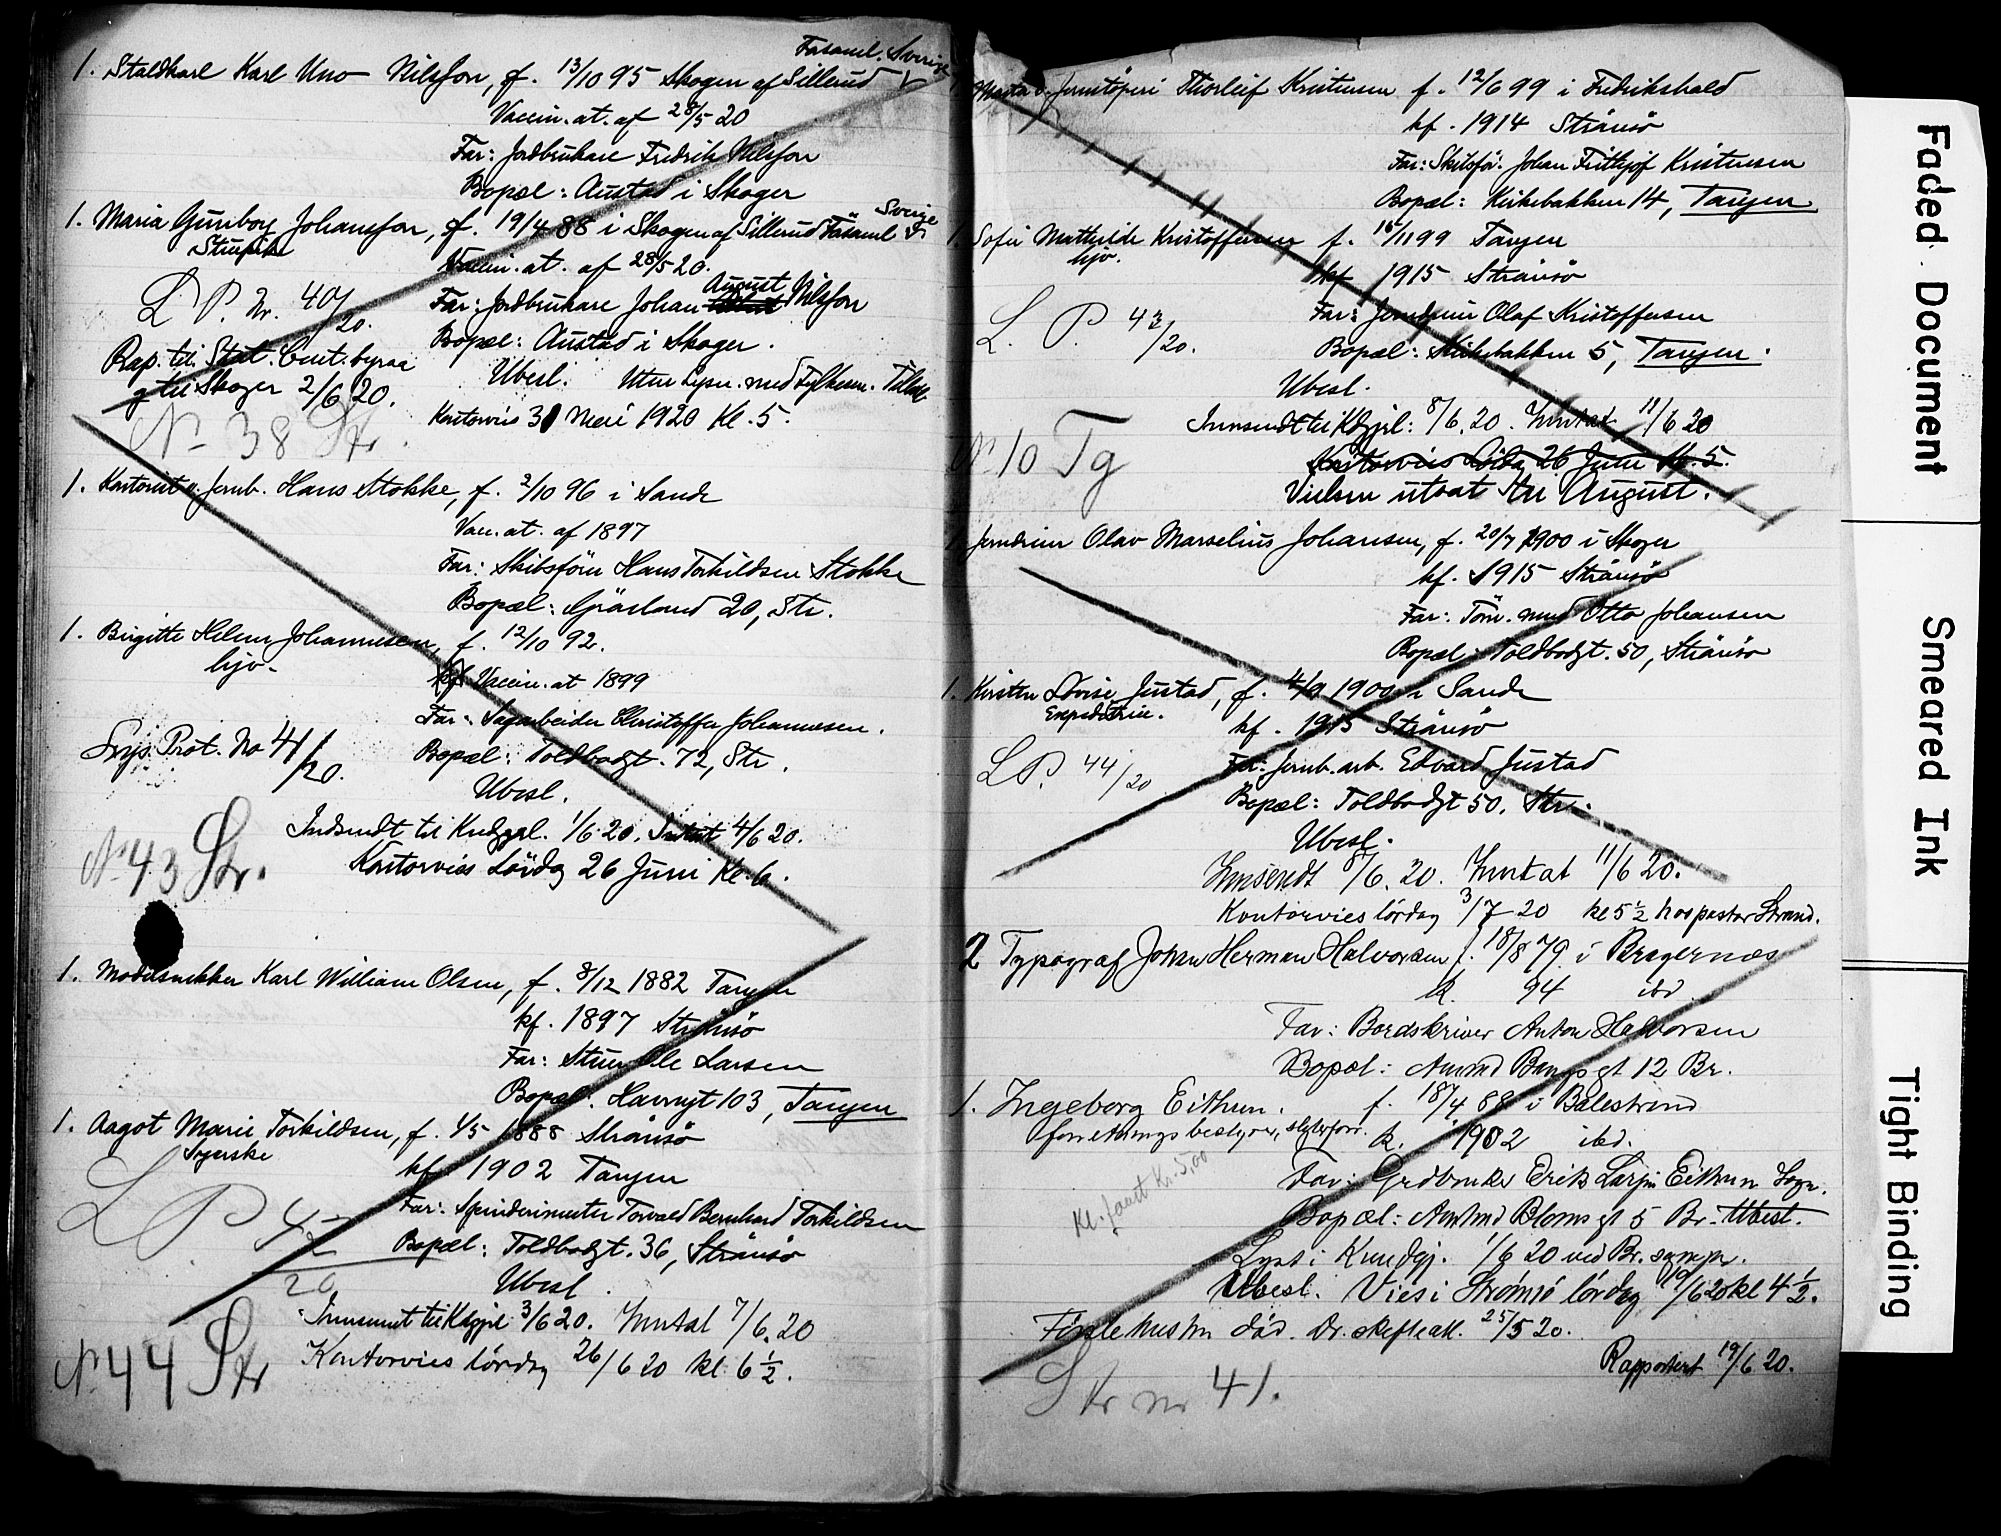 Fasaml. Sverige
1. Staldkarl Karl Uno Nilsson, f. 13/10 95 Skogen af Sillerud
Vaccin. at. af 28/5 20
Far: Jordbrukare Fredrik Nilsson
Bopæl: Austad i Skoger
Sverige
1. Maria Gunborg Johansson, f. 19/4 88 i Skogen af Sillerud Fasaml
Stuepike
Vaccin. at. af 28/5 20.
August
L P. Nr. 40/20.
Far: Jordbrukare Johan Nilsson
Bopæl: Austad i Skoger.
Rap. til Stat. Cent. byraa
Ubesl. Uten Lysn. med Fylkesm.
og til Skoger 2/6 20.
Kontorvies 31 Mai 1920 Kl. 5.
No 38 Str.
1. Kontorist v. Jernb. Hans Stokke, f. 2/10 96 i Sande
Vacc. at. af 1897
Far: Skibsfører Hans Torkildsen Stokke
Bopæl: Grønland 20, Str.
1. Birgitte Helene Johannesen, f. 12/10 92.
hjv.
Vaccin. at 1899
Far: Sagarbeider Christoffer Johannesen.
Lysn. Prot. No 41/20.
Bopæl: Toldbodgt. 72, Str.
Ubesl.
Indsendt til Kndgjøl. 1/6 20. Inntat 4/6 20.
No 43 Str.
Kontorvies Lördag 26 Juni Kl. 6.
1. Modelsnekker Karl William Olsen, f. 8/12 1882 Tangen
kf. 1897 Strömsö
Far: Stuer Ole Larsen
Bopæl: Havnegt 103, Tangen
1. Aagot Marie Torkildsen, f. 4/5 1888 Strömsö
Syerske
kf. 1902 Tangen
L P. 42/20
Far: Spinderimester Torvald Bernhard Torkildsen
Bopæl: Toldbodgt. 36, Strömsö
Ubesl.
Innsendt til Kdgjøl 3/6 20. Inntat 7/6. 20
No 44 Str
Kontorvies lördag 26/6 20 kl. 6 1/2.
Thorleif Kristensen f. 12/6 99 i Fredrikshald
kf. 1914 Strömsö
Far: Skibsför. Johan Frithjof Kristensen
Bopæl: Kirkebakken 14, Tangen
1. Sofie Mathilde Kristoffersen f. 15/11 99 Tangen
hjv.
kf 1915 Strömsö
Far: Jerndreier Olaf Kristoffersen
L. P. 43/20.
Bopæl: Kirkebakken 5, Tangen.
Ubesl.
Innsendt til Kdgjøl: 8/6. 20. Inntat 11/6 20
No 10 Tg
Kontorvies Lördag 26 Juni kl. 5.
Vielsen utsat til August.
1. Jerndreier Olav Marselius Johansen, f. 20/7 1900 i Skoger
kf. 1915 Strömsö
Far: Töm. mand Otto Johansen
Bopæl: Toldbodgt. 50, Strömsö
1. Kirsten Lovise Justad, f. 4/9 1900 i Sande
Expeditrice.
kf. 1915 Strömsö
Far: Jernb. arb. Edvard Justad
L P. 44/20
Bopæl: Toldbodgt 50. Str.
Ubesl.
Innsendt 8/6. 20. Inntat 11/6 20.
Kontorvies lördag 3/7 20 kl 5 1/2 hos pastor Strand.
2 Typograf Johan Herman Halvorsen f. 18/8 79. i Bragernæs
k. 94 ibd.
Far: Bordskriver Anton Halvorsen
Bopæl: Amund Bangs gt 12 Br.
1. Ingeborg Eithun. f. 18/4 88 i Balestrand
forretningsbestyrer,
k. 1902 ibd.
Far: Grdbruker Erik Larsen Eithun Sogn.
Kl. faaet Kr. 5,00
Bopæl: Amund Bloms gt 5 Br. Ubesl.
Lyst i Kundgj. 1/6 20 ved Br. sognepr.
Ubesl. Vies i Strømsø lördag 19/6 20 kl 4 1/2.
Første hustru død. Dr. skifteatt. 25/5 20.
Rapportert 19/6 20.
Str nr 41.
Faded Document
Smeared Ink
Tight Binding